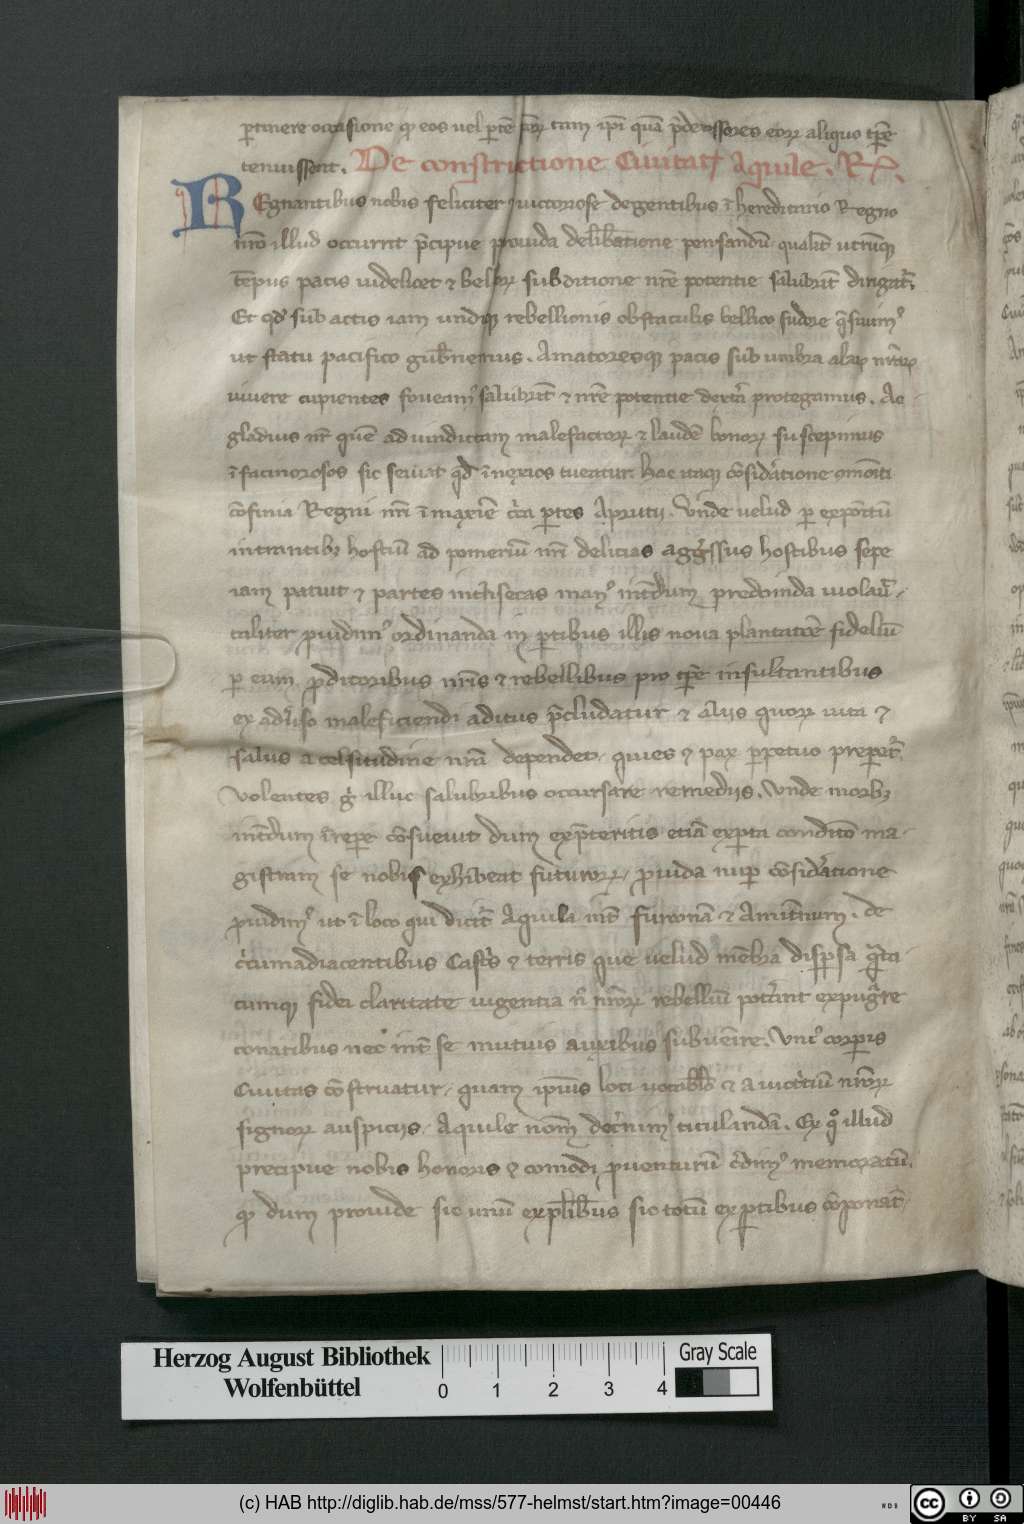 ꝑtinere occasione ꝙ eos uel ꝑtē eoꝝ tam ip̄i quā p̄decessores eoꝝ aliquo tp̄e
tenuissent. De constrictione Ciuitatꝭ Aquile. Rᶜ.
REgnantibus nobis feliciter ⁊ uictoriose degentibus ī hereditario Regno
nr̄o illud occurrit p̄cipue prouida delib̄atione pensandū qualit̄ utrūqꝫ
tēpus pacis uidelicet ⁊ belloꝝ subditione nr̄e potentie salubrit̄ dirigat᷑.
Et qd̓ sub actis iam undiqꝫ rebellionis obstaculis bellico sudore q̄siuimꝰ
ut statu pacifico gub̄nemus. Amatoresqꝫ pacis sub umbra alaꝝ nr̄aꝝ
uiuere cupientes foueamꝰ salubrit̄ ⁊ nr̄e potentie dext̄a protegamus. Ac
gladius nr̄ quē ad uindictam malefactoꝝ ⁊ laudē bonoꝝ suscepimus
ī facinorosos sic seuiat qd̓ īnoxios tueatur. Hac itaqꝫ cōsid̓atione ꝯmoniti
cōfinia Regni nr̄i ī maxīe cc̄a ꝑtes Aprutij. Vnde uelud ꝑ expōitū
intrantibꝫ hostiū ad pomeriū nr̄i delicias aggr̄ssus hostibus sepe
iam patuit ⁊ partes int̓nsecas manꝰ int̓dum predonida uiolau̓.
taliter ꝓuidimꝰ ordinanda in ꝑtibus illis noua plantatōe fideliū
ꝑ eam ꝓditoribus nr̄is ⁊ rebellibus pro tp̄e insultantibus
ex adu̓so maleficiendi aditus p̄cludatur ⁊ alijs quoꝝ uita ⁊
salus a celsitudine nr̄a dependet. quies ⁊ pax ꝑpetuo prepet᷑.
Volentes g̓ illuc salubribus occursare remedijs. Vnde morbꝫ
int̓dum īrepe cōsueuit dum exp̄teritis etiā exꝑta conditō ma
gistram se nobis exhibeat futuroꝝ. ꝓuida nuꝑ cōsid̓atione
ꝓuidimꝰ ut ī loco qui dicit᷑ Aquila int̄ furconā ⁊ Amit̄num. de
cc̄umadiacentibus Castͥs ⁊ terris que uelud mēbra disꝑsa q̄ta
cumqꝫ fidei claritate uigentia n̄ nr̄oꝝ rebelliū pot̓ant expug̃re
conatibus nec̓ int̄ se mutuis auxibus subuenire. Vniꝰ corꝑis
Ciuitas cōstruatur. quam ip̄ius loci uocabl̄o ⁊ a uict̓iū nr̄oꝝ
signoꝝ auspicijs. Aquile nom̄ dec̓nimꝰ titulandā. Ex qͦ illud
precipue nobis honoris ⁊ comodi ꝓuenturū c̓dimꝰ memoratū.
ꝙ dum prouide sic unū expl̄ibus sic totū ex ꝑtibus cōponat᷑.
Herzog August Bibliothek
Wolfenbüttel
0 1 2 3 4
Gray Scale
(c) HAB http://diglib.hab.de/mss/577-helmst/start.htm?image=00446
WDB
cc BY SA